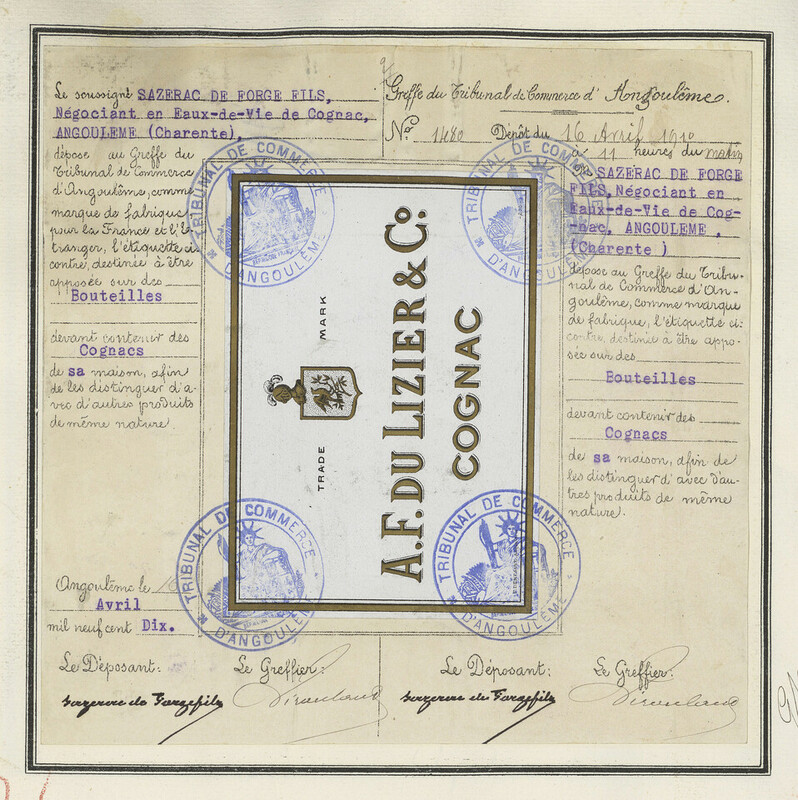 Le soussigné SAZERAC DE FORGE FILS,
Négociant en Eaux-de-Vie de Cognac,
ANGOULEME (Charente),
dépose au Greffe du
Tribunal de Commerce
d'Angoulême, comme
marque de fabrique
pour la France et l'é-
tranger, l'étiquette ci
contre, destinée à être
apposée sur des
Bouteilles
devant contenir des
Cognacs
de sa maison, afin
de les distinguer d'a-
vec d'autres produits
de même nature.
Angoulême le 16
Avril
mil neuf cent Dix.
Le Déposant:
Le Greffier:
Sazerac de Forge fils
Greffe du Tribunal de Commerce d'Angoulême.
No. 1480 Dépôt du 16 Avril 1910
à 11 heures du matin
SAZERAC DE FORGE
FILS, Négociant en
Eaux-de-Vie de Cog-
nac, ANGOULEME,
(Charente )
dépose au Greffe du Tribu-
nal de Commerce d'An-
goulême, comme marque
de fabrique, l'étiquette ci-
contre, destinée à être appo-
sée sur des
Bouteilles
devant contenir des
Cognacs
de sa maison, afin de
les distinguer d'avec d'au-
tres produits de même
nature.
Le Déposant:
Le Greffier:
Sazerac de Forge fils
TRADE MARK
A.F. DU LIZIER & Co.
COGNAC
TRIBUNAL DE COMMERCE
D'ANGOULÊME
TRIBUNAL DE COMMERCE
D'ANGOULÊME
TRIBUNAL DE COMMERCE
D'ANGOULÊME
TRIBUNAL DE COMMERCE
D'ANGOULÊME